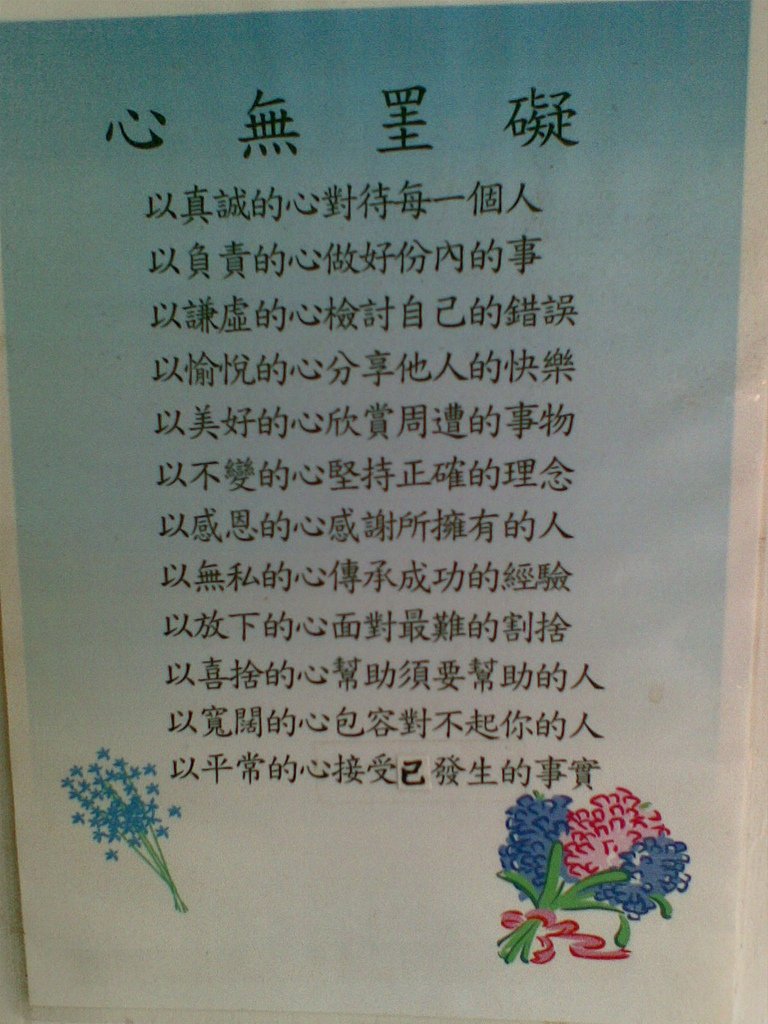 心無罣礙
以真誠的心對待每一個人
以負責的心做好份內的事
以謙虛的心檢討自己的錯誤
以愉悅的心分享他人的快樂
以美好的心欣賞周遭的事物
以不變的心堅持正確的理念
以感恩的心感謝所擁有的人
以無私的心傳承成功的經驗
以放下的心面對最難的割捨
以喜捨的心幫助須要幫助的人
以寬闊的心包容對不起你的人
以平常的心接受已發生的事實